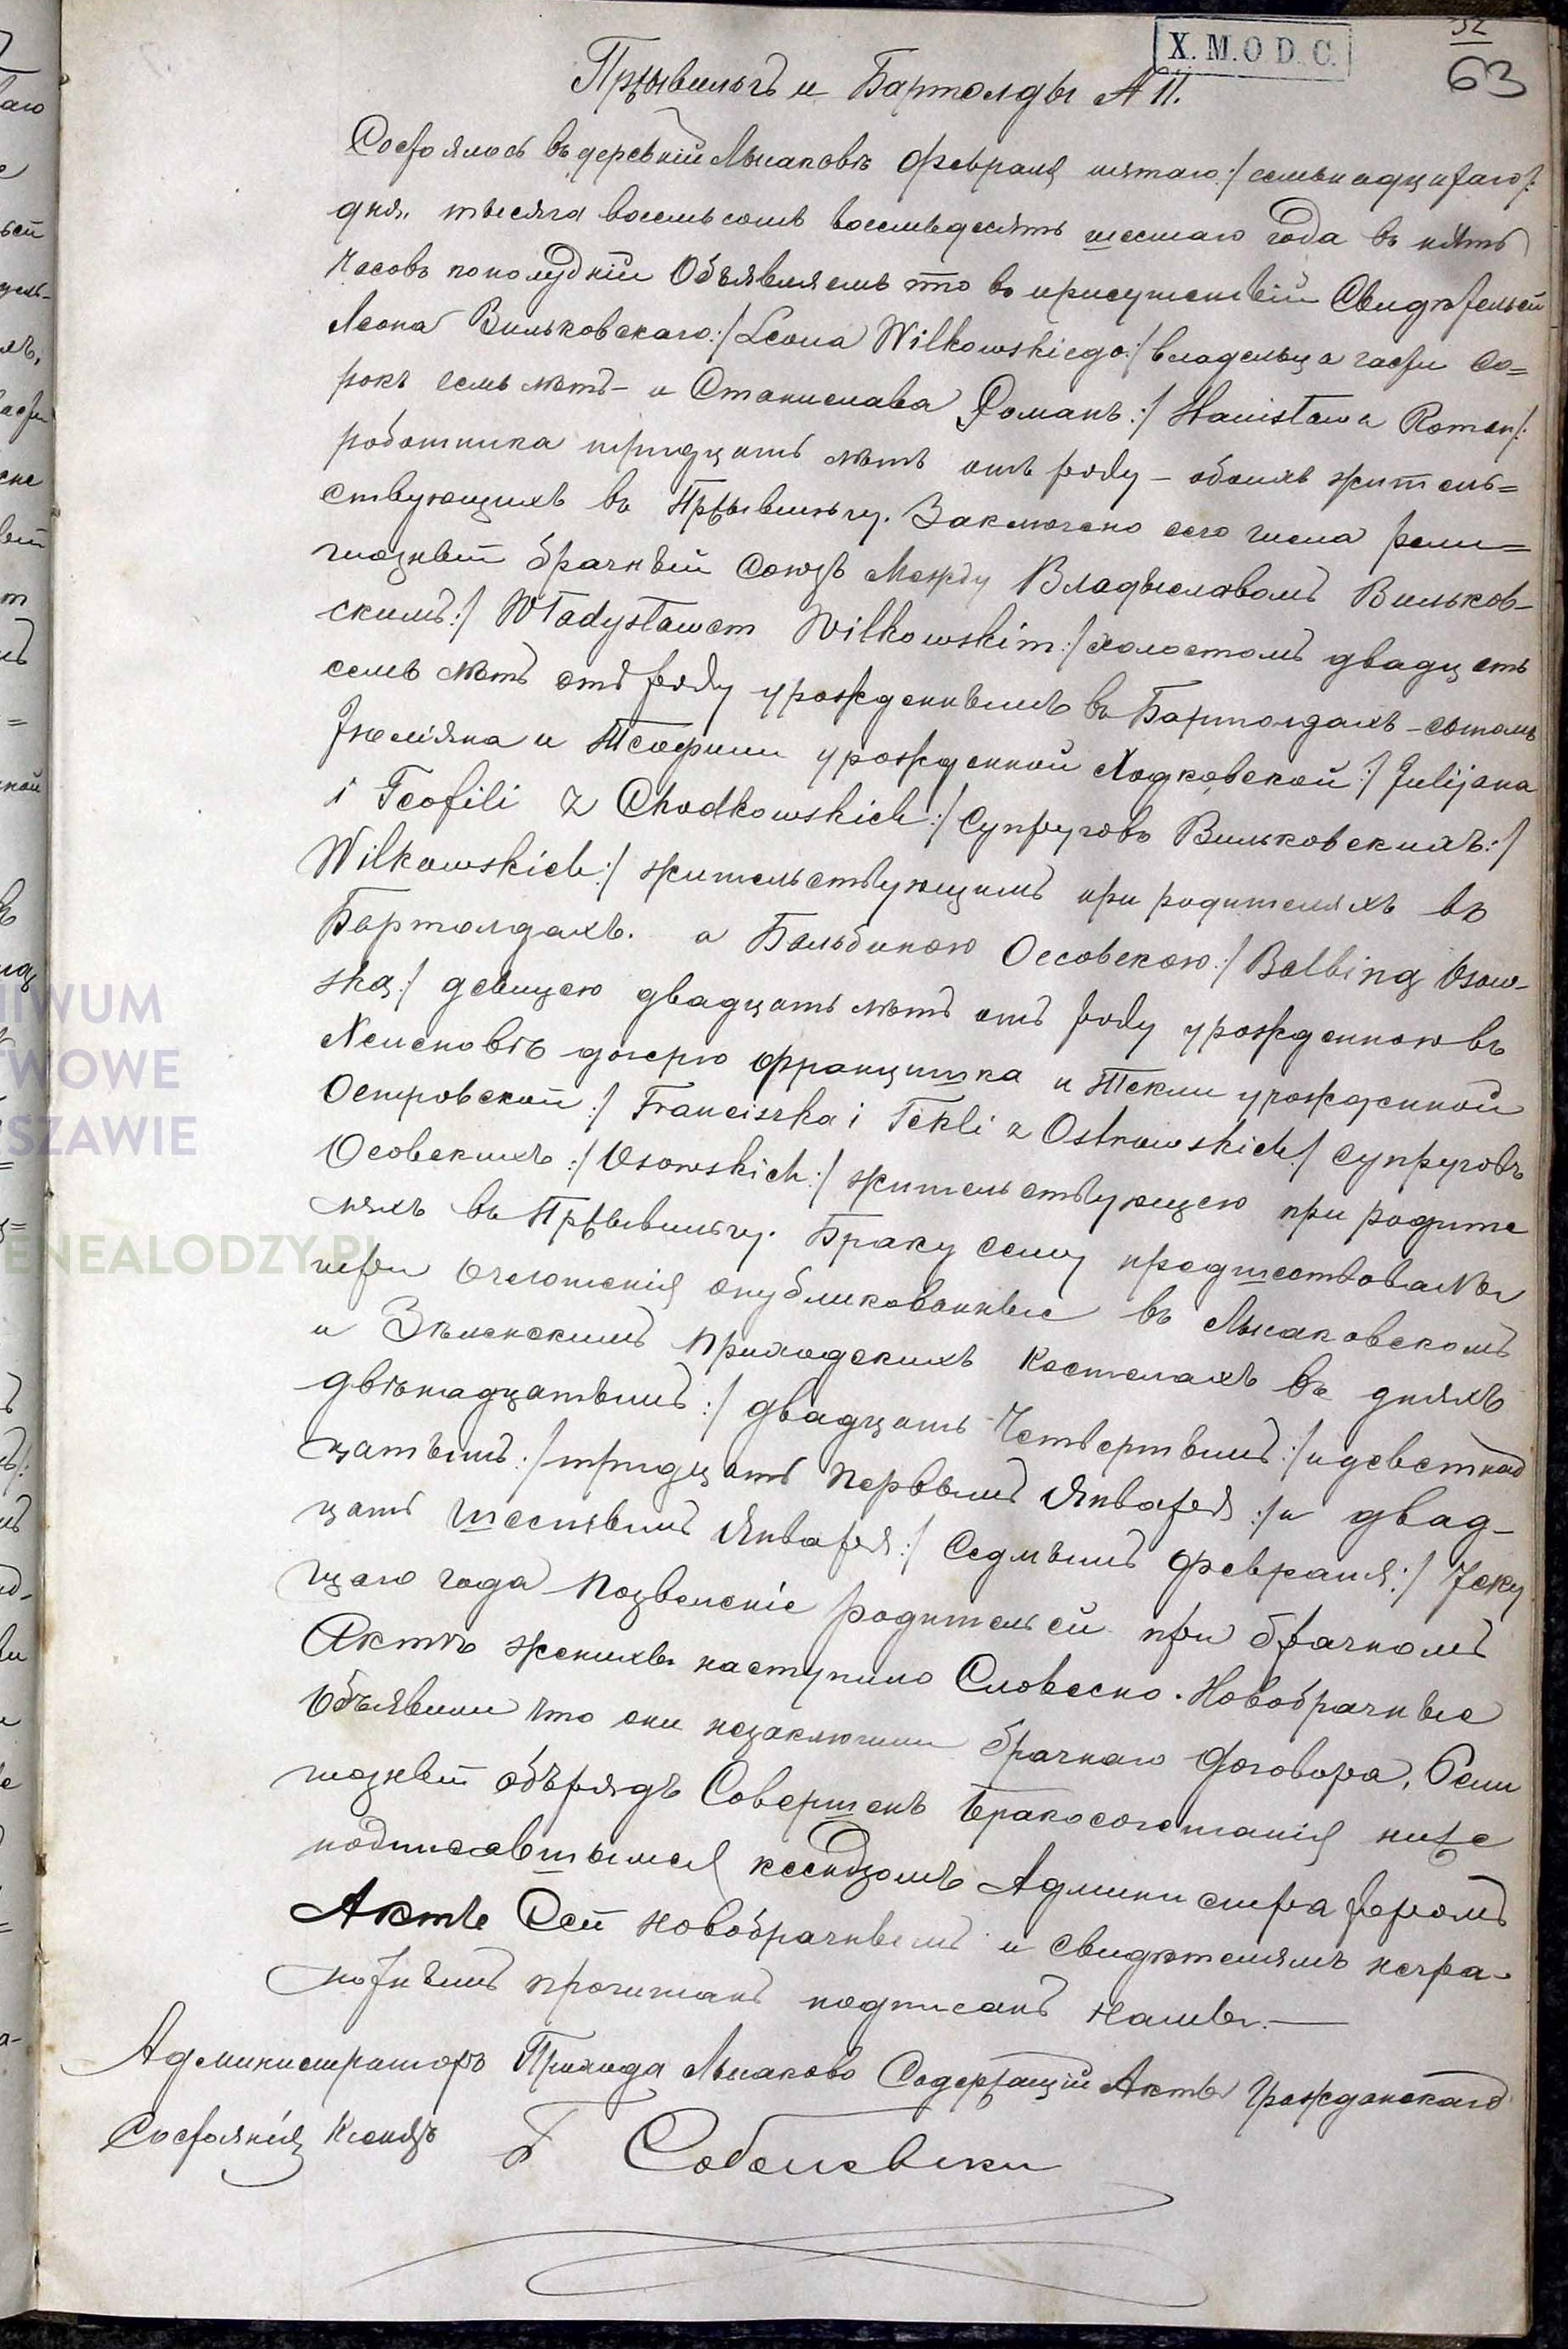 X. M. O D. C.
52
63
Пржывильгъ и Бартолды № 11.
Состоялось въ деревнѣи Лысаковѣ Февраля пятаго:/ семьнадцатаго/:
дня, тысяча восемьсотъ восемьдесятъ шестаго года въ пять
часовъ пополуднѣи Объявляемъ что въ присутствіи Свидѣтельей
Леона Вильковскаго:/ Leona Wilkowskiego:/ владельца части со=
рокъ семь лѣтъ – и Станислава Романъ:/ Stanisława Roman/:
работника тридцать лѣтъ отъ роду – обоихъ житель=
ствующихъ въ Пржывильгу. Заключено сего числа рели=
гіозный брачный союзъ Между Владыславомъ Вильков-
скимъ:/ Władysławem Wilkowskim:/ холостомъ двадцать
семь лѣтъ отъ роду урожденнымъ въ Бартолдахъ – сыномъ
Юліяна и Теофили урожденной Ходковской:/ Julijana
i Teofili z Chodkowskich:/ супруговъ Вильковскихъ:/
Wilkowskich:/ жительствующимъ при родителяхъ въ
Бартолдахъ. а Бальбиною Оссовскою:/ Balbiną Osow-
ską:/ девицею двадцать лѣтъ отъ роду урожденною въ
дочерю Францишка и Текли урожденной
Островской:/ Franciszka i Tekli z Ostrowskich:/ супруговъ
Осовскихъ:/ Osowskich:/ жительствующею при родите
ляхъ въ Пржывильгу. Браку сему предшествовалы
три оглошенія опубликованные въ Лысаковскомъ
и Зѣленскимъ приходскихъ костелахъ въ дняхъ
двѣнадцатымъ:/ двадцать Четвертымъ:/ и деветнад
цатымъ:/ тридцать первымъ Января:/ и двад-
цать шестымъ Января:/ Седмымъ Февраля:/ теку
щаго года Позволеніе родительей при брачномъ
Актѣ жениховъ наступило Словесно. Новобрачные
Объявили что они незаключили брачнаго договора, Рели
гіозный обърядъ Совершенъ бракосочетанія ниже
подписавшымся ксендзомъ Администраторомъ
Актъ Сей новобрачнымъ и свидѣтелямъ негра-
мотнымъ прочитанъ подписанъ Нами. —
Администраторъ Прихода Лысаково Содержащій Акты Гражданскаго
Состоянія Ксендзъ Соболевски
IWUM
WOWE
SZAWIE
ENEALODZY.PL